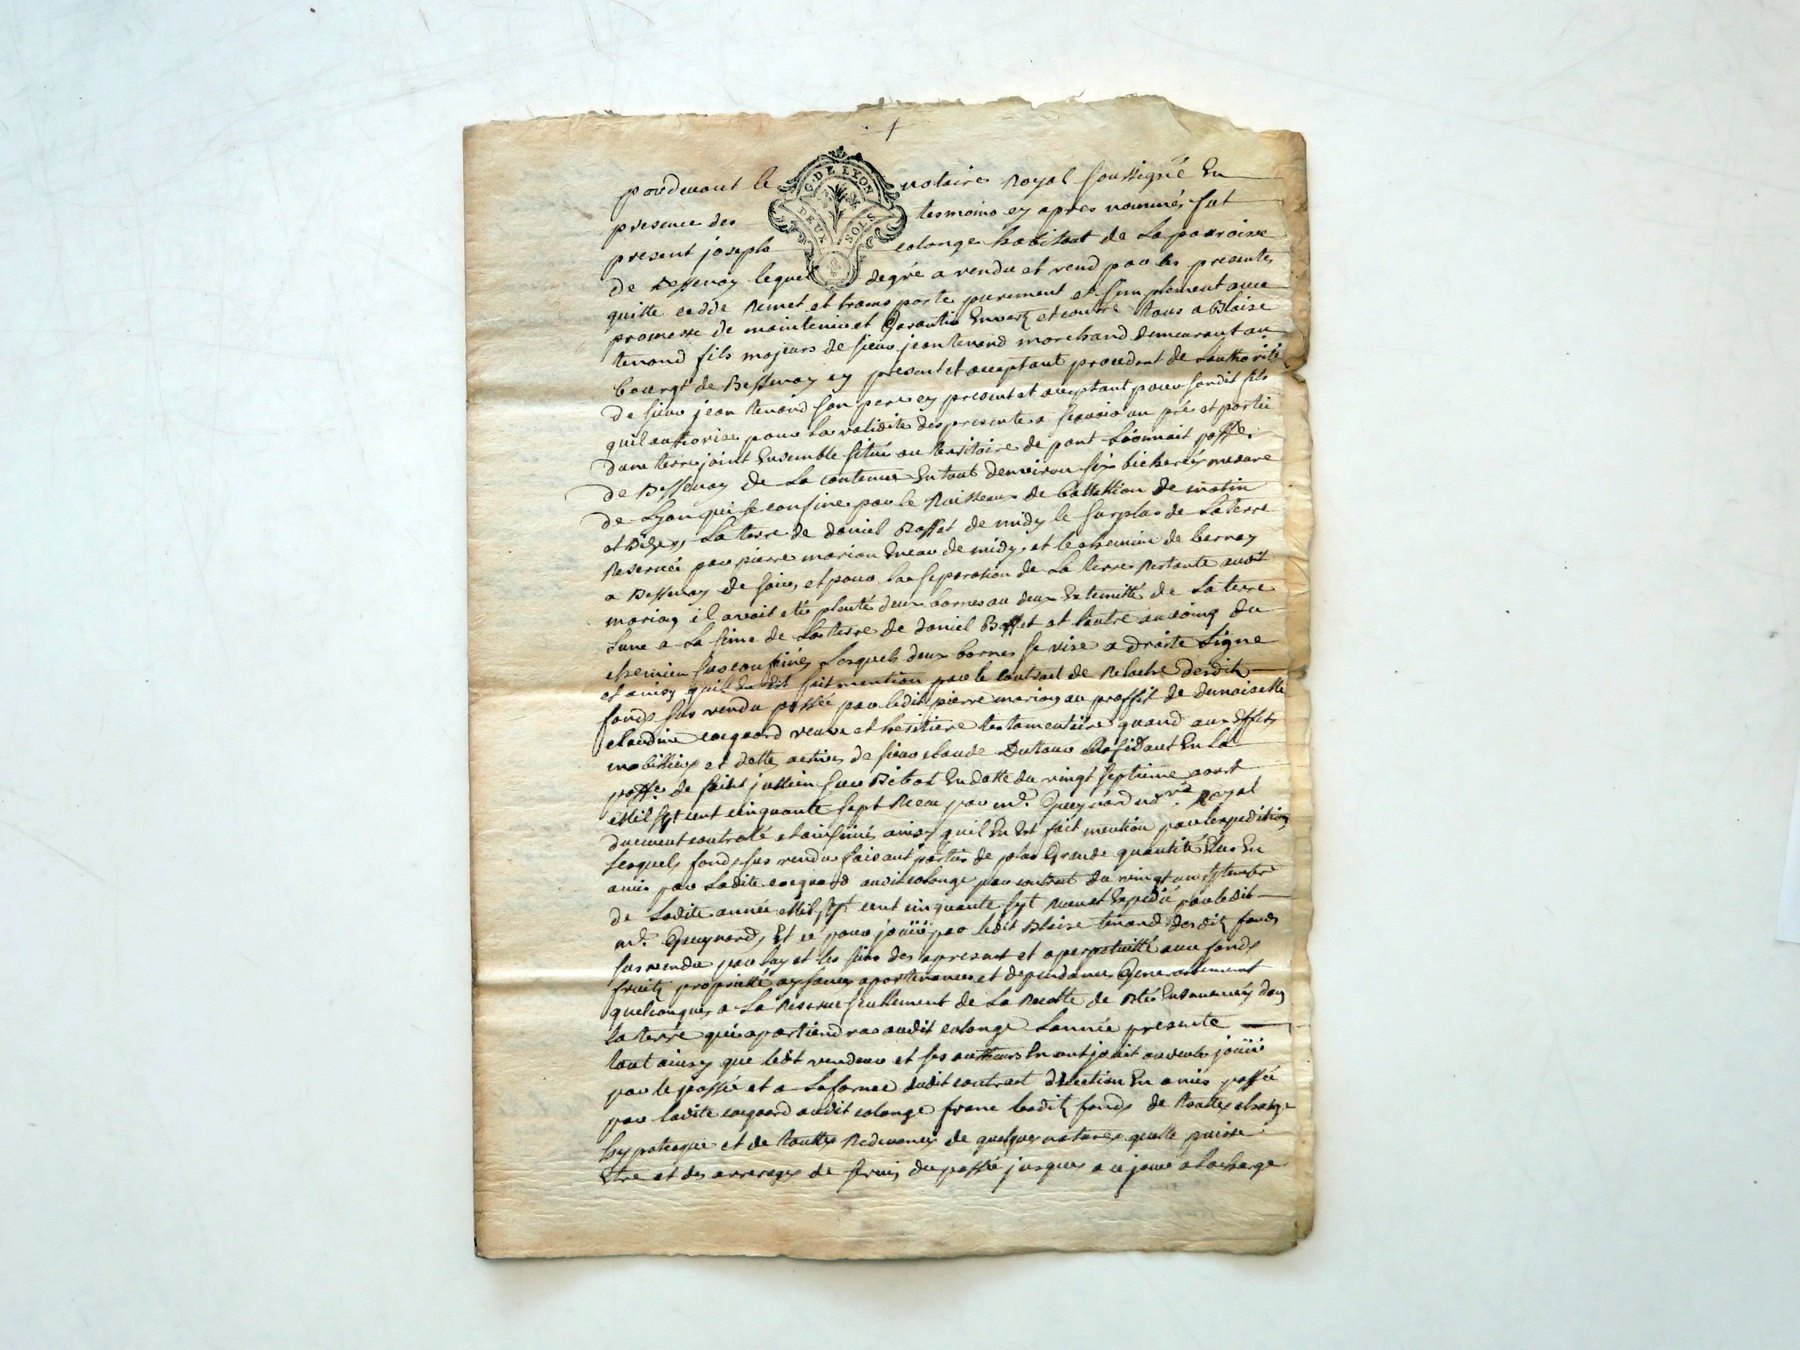 pardevant le notaire Royal soussigné En
G. DE LYON
DEUX SOLS
presence des tesmoins cy apres nommés fut
present joseph colonge habitant de La paroisse
de Bessenay lequel degré a vendu et vend par les presentes
quitte cedde Remet et transporte purement et simplement avec
promesse de maintenir et Garantir Envers et contre Tous a Blaise
tenand fils majeurs de sieur jean tenand marchand demeurant au
bourgt de Bessenay cy present et acceptant procedant de Lauthorité
de sieur jean tenand son pere cy present et acceptant pour sondit fils
quil authorise pour La validité des presente a sçavoir un pré et partie
dune terre joint Ensemble situé au territoire de pont Lionnait parsse
de Bessenay de La contenue En tout denviron six bicherés mesure
de Lyon qui se confine par le Ruisseau de de matin
et Bize, La terre de daniel Boffet de midy le surplus de La terre
Reservée par pierre marion Encor de midy, et le chemin de bernay
a Bessenay de soir, et pour la separation de La terre Restante audit
marion il avait eté planté deux bornes au deux Extemitté de La terre
Lune a La sime de La terre de daniel Boffet et Lautre au coing du
chemin sus confiné, Lesquels deux bornes se vise a droite Ligne
et ainsy quil En Est fait mention par le contract de Relache desdits
fonds sus vendu passée par ledit pierre marion au proffit de demoiselle
claudine coquard veuve et heritiere testamentaire quand aux Effets
mobilliers et dette actives de sieur claude Dutour Residant En La
parsse de saint jullien sur Bibost En datte du vingt septieme aoust
Mil sept cent cinquante sept Receu par me. Guynard nore. Royal
duement controlé et insinué ainsy quil En Est fait mention par lexpedition
lesquels fonds sus vendu faisant partie de plus Grande quantité Elus En
amis par Ladite coquard audit colonge par contract du vingt un septembre
de Ladite année Mil sept cent cinquante sept Receu et Expedié par ledit
me. Guynard, Et ce pour jouïr par ledit Blaise tenand desdits fonds
sus vendu par luy et les siens des apresant et a perpetuitté avec fonds
fruits proprietté aysances apartenances et dependances Generallement
quelconques a La Reserve seullement de La Recolte de Bléd Ensemencés dans
la terre qui apartiendra audit colonge Lannée presente
tout ainsy que ledit vendeur et ses autheurs En ont jouit ou deubs jouïr
par le passé et a La forme dudit contract delection En amis passée
par ladite coquard audit colonge franc lesdits fonds de touttes charge
hypoteque et de touttes Redevances de quelques natures quelle puisse
Etre et des arrerages de servis du passé jusques a ce jour a la charge